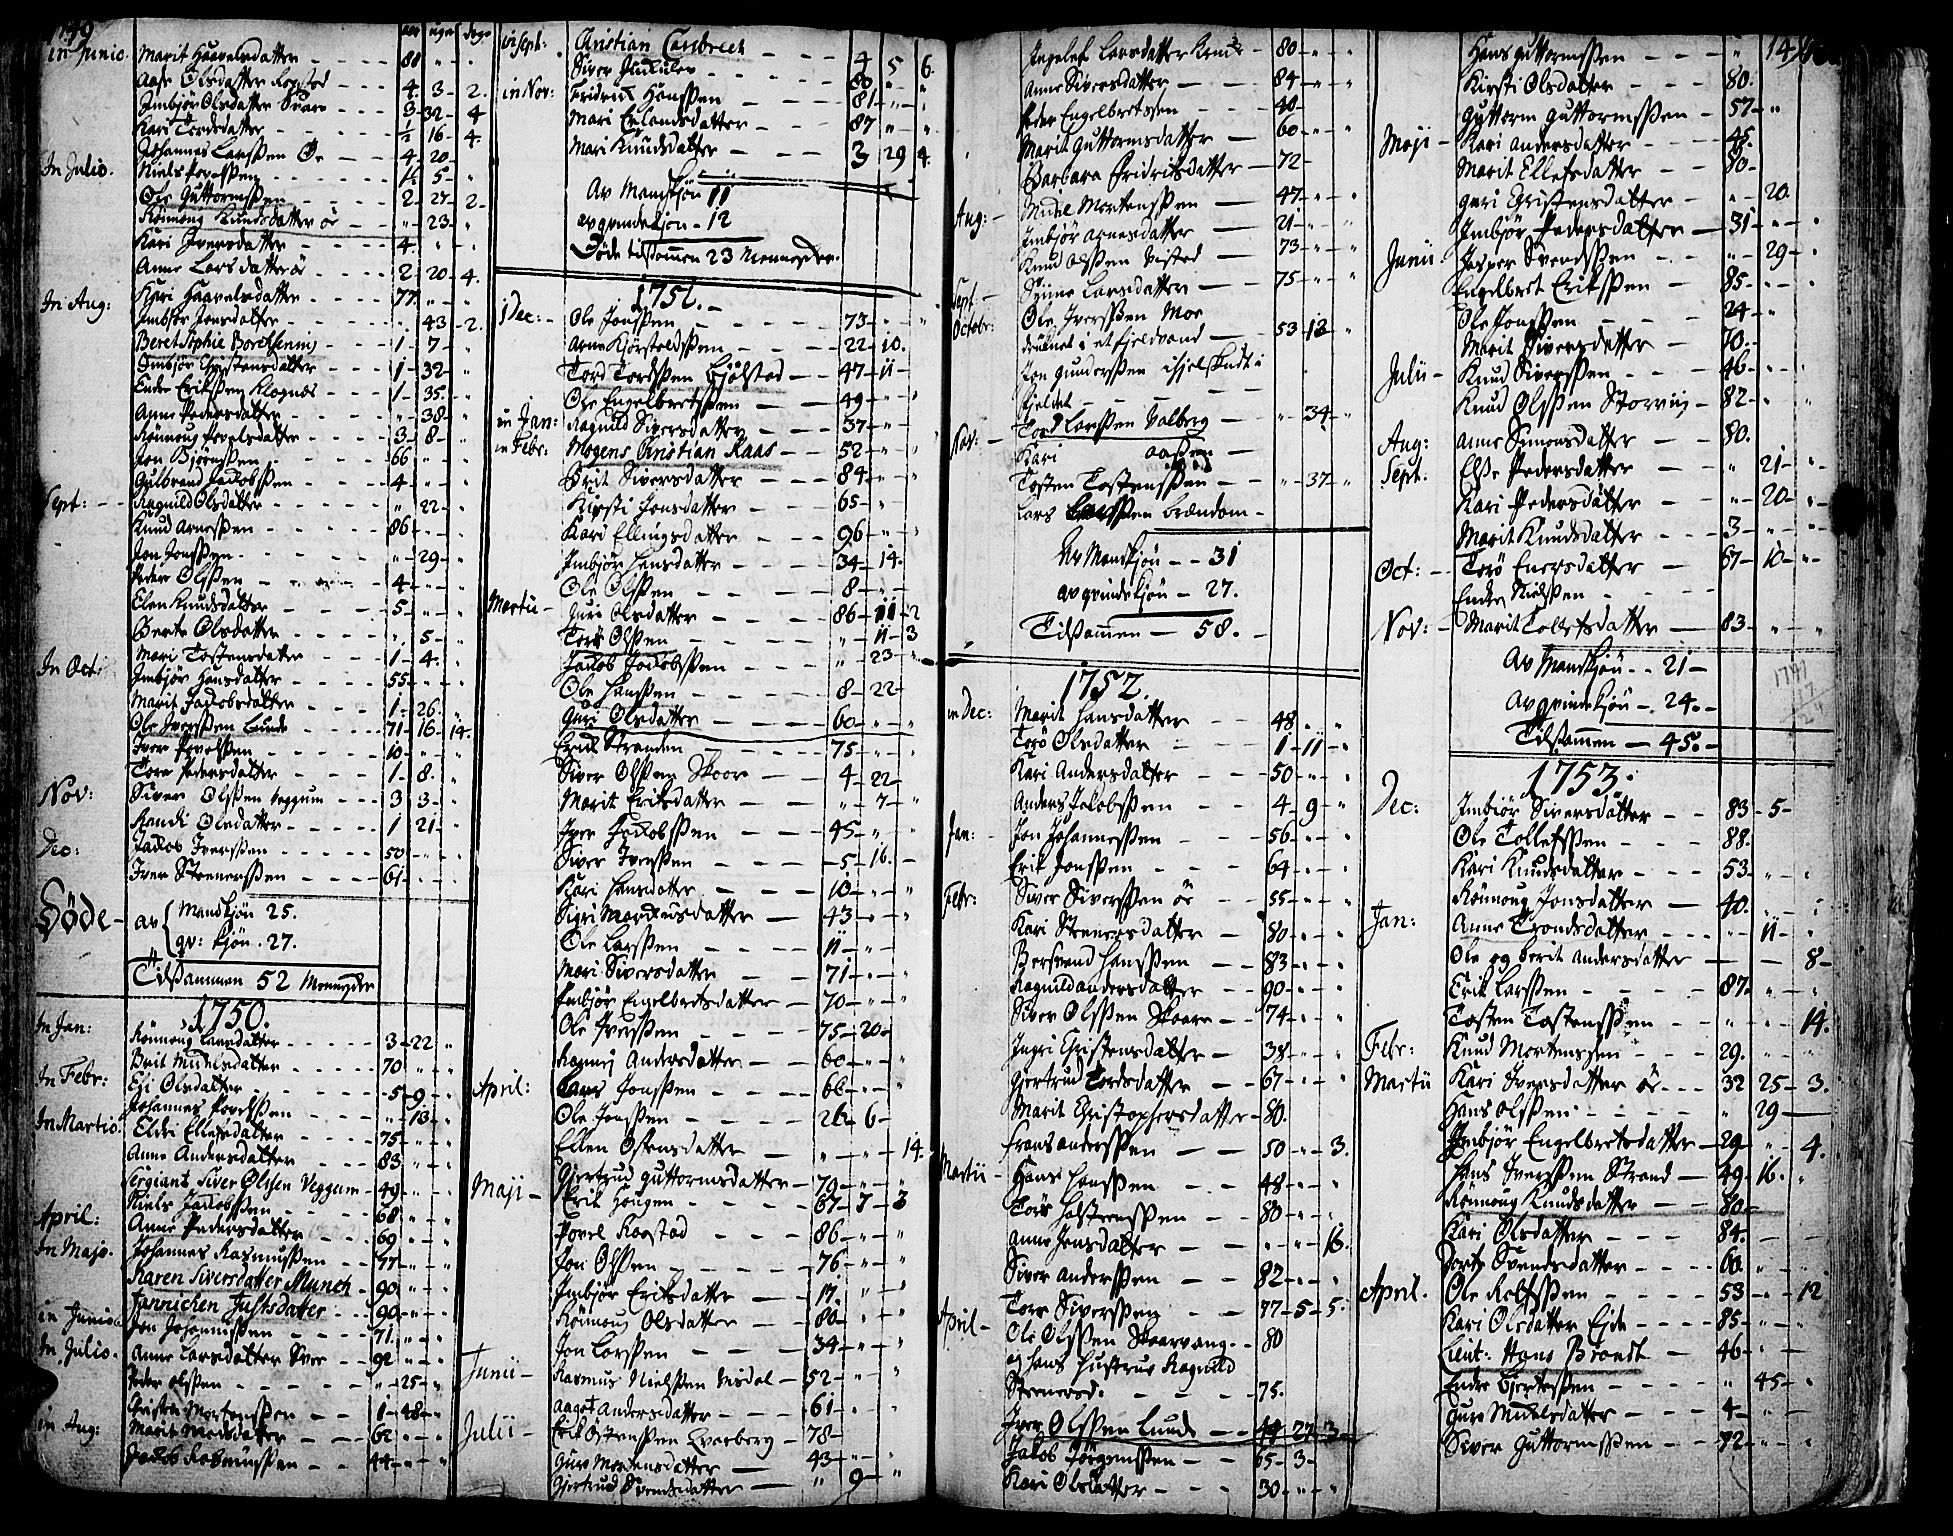 1749
aar uger dage
in Junio. Marit Haavelsdatter - - - 80 " "
Aase Olsdatter Rogstad 4. 3 - 2.
Imbjør Olsdatter Svare - - 3 - 32 - 4
Kari Tordsdatter - - - - ½ 16 - 4.
Johannes Larssen Øe - - 4. 20 -
In Julio. Niels Povelssen - - - - 5 - "
Ole Guttormssen - - - - 2 - 27 - 2 -
Rönnoug Knudsdatter ör - " - 23 - "
Kari Iversdatter - - - - 4. - " - "
Anne Larsdatter ör - - - 2 - 20 - 4.
In Aug: Kari Haavelsdatter - - - - 77 - " - "
Imbjør Jonsdatter - - - - " 43 - 2.
Beret Sophie Borchsenius - 1 - 7 - "
Imbjør Christensdatter - - 1 - 32 - "
Endre Erikssen Klognes - - 1 - 35. - "
Anne Pedersdatter - - - - 38 - "
Rönnoug Povelsdatter - - 3 - 8 - "
Jon Bjørnssen - - - - 66 - " - "
Gulbrand Jacobssen - - 4 - " - "
Sept: - Ragnild Olsdatter - - - " 22 - "
Knud Arnessen - - - - 86 - " - "
Jon Jonssen - - - - " - 29 - "
Peder Olssen - - - - 4 - " - "
Elen Knudsdatter - - - 5 - " - "
Berte Olsdatter - - - - " 5 - "
Mari Tostensdatter - - - 1 - 4. "
In Oct: Imbjør Hansdatter - - - 55 - " - "
Marit Jacobsdatter - - - 1 - 26. "
Ole Iverssen Lunde - - - 71 - 16 - 14.
Iver Povelssen - - - - 10 - " - "
Tore Pedersdatter - - - 1 - 8. "
Nov: Siver Olssen Veggum - - - 3 3 - "
Randi Olsdatter - - - - 1 21 - "
Dec: Jacob Iverssen - - - - 50 - " - "
Iver Steenerssen - - - 61 - " - "
Døde - av { Mandkjøn 25.
qv: kjøn . 27.
Tilsammen 52 Mennesker
1750.
In Jan: Rönnoug Larsdatter - - - - 3 - 22 "
Brit Mickelsdatter - - - 70 " "
In Febr: Eli Olsdatter - - - - 5 - 9 - "
Johannes Povelssen - - - " - 13 - "
In Martio. Eldri Ellefsdatter - - - 75 - " "
Anne Andersdatter - - - 83 - " - "
Sergiant Siver Olssen Veggum - 49 - " - "
Niels Jacobssen - - - - 68 " "
April: Anne Pedersdatter - - - 69 - " "
In Majo. Johannes Rasmussen - - - 77 - " "
Karen Siversdatter Munch - 90 - " - "
Jannichen Justsdatter - - 90 - " - "
in Junio Jon Johannessen - - - - 71 - " - "
In Julio. Anne Larsdatter Svor - - 92 - " - "
Peder Olssen - - - - " - 25 - "
Christen Mortenssen - - 1 - 48 - "
in Aug: Marit Madsdatter - - 62 - " - "
Jacob Rasmussen - - 44 - " - "
in Sept: Christian Cambrech - - - 4 5 6.
Siver Juckulev - - - - 80 - " "
in Nov: Fridrich Hanssen - - - 81 - " "
Mari Erlandsdatter - - - 87 " "
Mari Knudsdatter - - - 3 29 4.
Av Mandkjøn 11
av qvindekjøn - 12
Døde tilsammen 23 Mennesker.
1751.
i Dec: - Ole Jonssen - - - - 73 - " - "
Arne Kjørstadssen - - - 22 - 10.
Tord Tordssen Bjølstad - - 47 - 11 - "
Ole Engelbretssen - - 49 - " "
in Jan: Ragnild Siversdatter - - 37 - " "
in Febr: Mogens Christian Kaas - - 52 - " - "
Brit Siversdatter - - - 84 - "
Kirsti Jonsdatter - - - 65 - "
Kari Ellingsdatter - - - 96 - " - "
Imbjør Hansdatter - - - 34 - 14 -
Ole Olssen - - - - 8 - " -
Martii - Guri Olsdatter - - - 86 - 11 - 2
Tord Olssen - - - - " - 11 - 3
Jacob Jacobssen - - - " - 23 - "
Ole Hanssen - - - 8 - 22 -
Guri Olsdatter - - - - 60 - " - "
Erich Stranden - - - 75 - " "
Siver Olssen Skoor - - 4 - 22 -
Marit Eriksdatter - - - " - 7 - "
Iver Jacobssen - - - 45 - " "
Siver Iverssen - - - 5 - 16. -
Kari Hansdatter - - - 10 - " - "
Sigri Marckusdatter - - 43 - " - "
Ole Larssen - - - - 11 - " -
Mari Siversdatter - - - 71 - " - "
Imbjør Engelbretsdatter - - 70 - " - "
Ole Iverssen - - - - 75 - 20 -
Ragnij Andersdatter - - 60 - " - "
April: Lars Jonssen - - - 66 - " "
Ole Jonssen - - - - 26 - 6 -
Ellen Ostensdatter - - - " - " - 14.
Gjertrud Guttormsdatter - - 70 - " - "
Maji - Erik Hougen - - - - 67 - 7 - 3
Povel Roostad - - - 86 - " - "
Jon Olssen - - - - 76 - " - "
Imbjør Eriksdatter - - - 17. " "
Rönnoug Olsdatter - - - 80 - " - "
Jon Larssen - - - - 34 - " - "
Junii - Rasmus Nielssen Nisdal - - 52 - " - "
Aagot Andersdatter - - - 61 - " - "
Julii - Erik Östenssen Qvarberg - - 78 -
Guru Mortensdatter - - - 43 - "
Gjertrud Svendsdatter - - " 9 - "
Ingelef Larsdatter - 80 - " - "
Anne Siversdatter - - 84 - " - "
Peder Engelbretssen - - 40 -
Marit Guttormsdatter - - 60 - " "
Barbara Fridriksdatter - 72 -
Aug: - Mickel Mortenssen - - 47 - " - "
Imbjør Arnesdatter - - 21 - " -
Knud Olssen Visted - - 73 - " "
Sept - Synne Larsdatter - - 75 - " "
Octobr: Ole Iverssen Moe
druknet i et fjeldvand - - 53 - 12 "
Jon Gunderssen ihjelskudt i
fjeldet - - -
Tord Larssen Valberg - - " - 34 - "
Nov: - Kari Aasen -
Tosten Tostenssen - - - " - 37 - "
Lars Larssen Brændom -
Av Mandkjøn - - 31
av qvindekjøn - 27.
Tilsammen - 58. -
1752.
in Dec: Marit Hansdatter - - 48 " "
Torö Olsdatter - - 1 - 11 - "
Kari Andersdatter - - 50 - " "
Anders Jacobssen - - 4 - 9 - "
Jan: - Jon Johannessen - - 56 - " "
Erik Jonssen - - 64 - " "
Febr: Siver Siverssen ör - - 55 - " - "
Kari Steenersdatter - - 80 - " "
Bersvend Hanssen - - 83 - " - "
Ragnild Andersdatter - - 90 - " - "
Siver Olssen Skaare - - 74 - " - "
Ingri Christensdatter - - 38 - " - "
Gjertrud Tordsdatter - - 67 - " - "
Marit Christophersdatter - 80.
Frans Anderssen - - 50 " 3.
Martii - Hans Hanssen - - 48 - " - "
Torö Halstenssen - - 80 - " -
Anne Jensdatter - - " - " - 16.
Siver Anderssen - - 82 - " - "
Tore Siverssen - - 77 - 5 - 5.
April - Ole Olssen Skaarvang - - 80
og hans Hustrue Ragnild
Steenersd. - - - 75.
Iver Olssen Lunde - - 44 27 3 -
Jacob Jörgenssen - - 65 - 3 -
Kari Olsdatter - - 30 - " - "
Hans Guttormssen - - " 14
Kirsti Olsdatter - - - 80.
Guttorm Guttormssen - 57 - "
Maji - Kari Andersdatter - - - - 45.
Marit Ellefsdatter - - 80 -
Guri Christensdatter - - " - 20.
Imbjør Pedersdatter - 31 - " - "
Junii - Jasper Svendssen - - " - 29 - "
Engelbret Erikssen - 85 - " - "
Ole Jonssen - - - - 24 - "
Marit Siversdatter - 70. -
Julii - Knud Siverssen - - - 46 - "
Knud Olssen Storvig - 82 - "
Aug: Anne Simonsdatter - - 80.
Sept: Else Pedersdatter - - " 21 - "
Kari Pedersdatter - - " - 20 - "
Marit Knudsdatter - - - 3 - " -
Oct: - Torö Enersdatter - 67 - 10 - "
Endre Nielssen - - -
Nov: - Marit Tollefsdatter - 83 - " - "
Av Mandkjøn - - 21 -
Av qvindekjøn - . 24. -
Tilsammen - 45. -
1753.
Dec: Imbjør Siversdatter - - 83 - 5 -
Ole Tollefssen - - - 88.
Kari Knudsdatter - - - 53 - " "
Rönnoug Jonsdatter - - 40. "
Jan: Anne Trondsdatter - - - " - 11 - "
Ole og Berit Andersdatter - - - 8 -
Erik Larssen - - - - 87 - "
Tosten Tostenssen - - " " " 14.
Febr: Knud Mortenssen - - 29. "
Martii Kari Iversdatter ör - - - 32 25 - 3.
Hans Olssen - - - - " 29 -
Imbjør Engelbretsdatter - 29 - " 4.
Hans Iverssen Strand - 49 - 16. "
Rönnoug Knudsdatter - - 80 -
Kari Olsdatter - - - 84.
Dorte Svendsdatter - - 60 "
April. Ole Rolfssen - - - 53 - " - 12
Kari Olsdatter Eide - - 85 - "
Lieut: Hans Brondt - 46 - "
Endre Gjertssen - - - " 45 - "
Guru Mickelsdatter - - - 4 -
Siver Guttormssen - - 72 - " - "